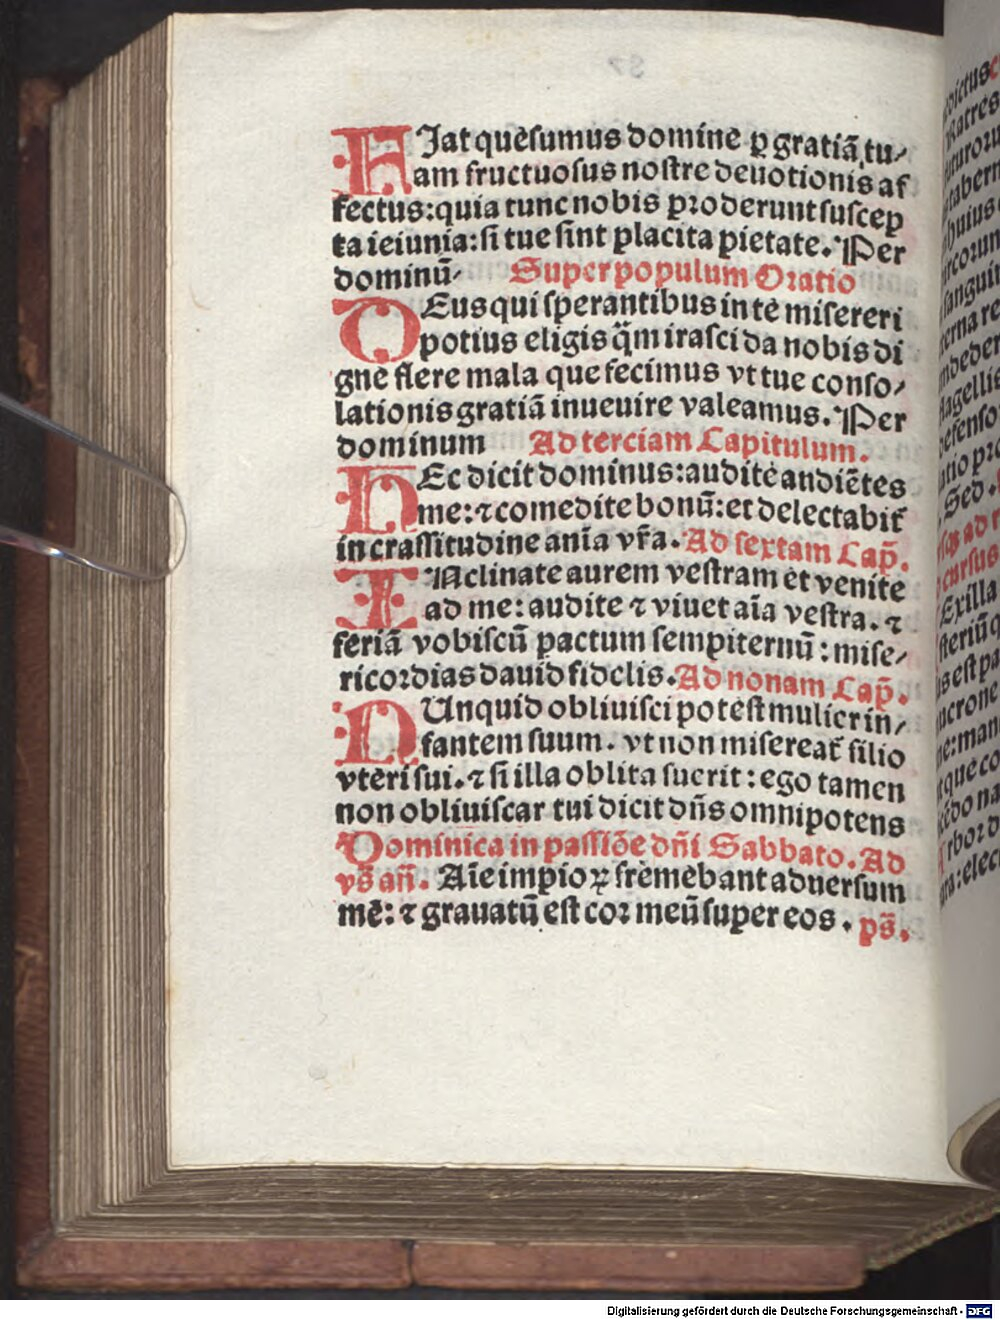 FJat quesumus domine ꝑ gratiā tu⸗
am fructuosus nostre deuotionis af
fectus: quia tunc nobis proderunt suscep
ta ieiunia: si tue sint placita pietate. Per
dominū⸗ Super populum Oratio
DEus qui sperantibus in te misereri
potius eligis q̄m irasci da nobis di
gne flere mala que fecimus vt tue conso⸗
lationis gratiā inueuire valeamus. Per
dominum Ad terciam Capitulum.
HEc dicit dominus: audite andiētes
me: ⁊ comedite bonū: et delectabit᷑
in crassitudine anīa vr̄a. Ad sextam Cap̄.
INclinate aurem vestram et venite
ad me: audite ⁊ viuet aīa vestra. ⁊
feriā vobiscū pactum sempiternū: mise⸗
ricordias dauid fidelis. Ad nonam Cap̄.
NUnquid obliuisci potest mulier in⸗
fantem suum. vt non misereat᷑ filio
vteri sui. ⁊ si illa oblita fuerit: ego tamen
non obliuiscar tui dicit dn̄s omnipotens
Dominica in passiōe dn̄i Sabbato. Ad
vs̄ an̄. Aīe impioꝝ fremebant aduersum
me: ⁊ grauatū est cor meū super eos. ps̄.
Digitalisierung gefördert durch die Deutsche Forschungsgemeinschaft - DFG